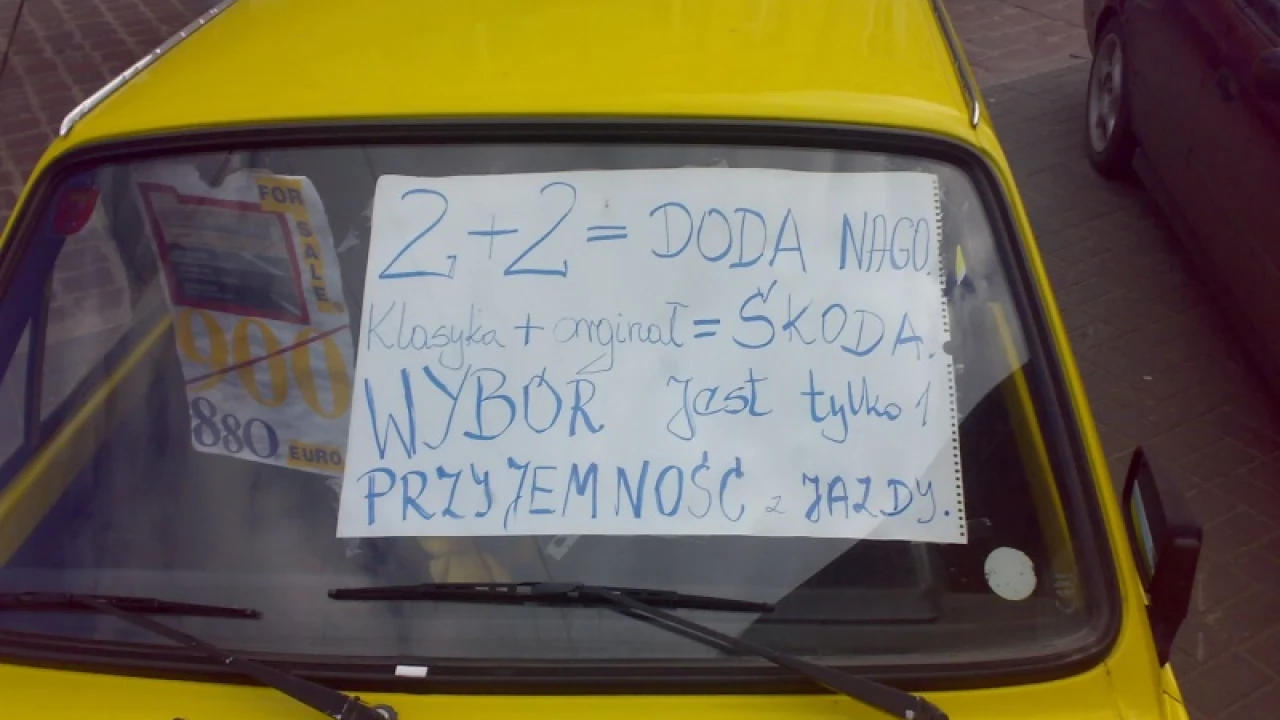 FOR SALE
900
880 EURO
2+2= DODA NAGO.
Klasyka + orginał = ŠKODA.
WYBÓR jest tylko 1
PRZYJEMNOŚĆ z JAZDY.